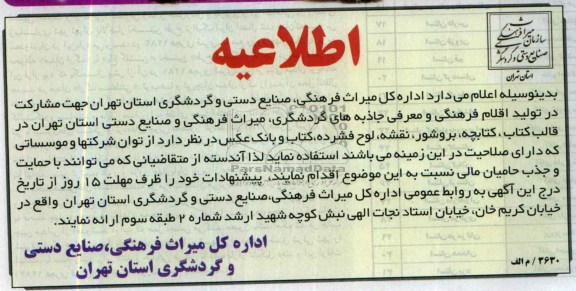 سازمان میراث فرهنگی
صنایع دستی و گردشگری
استان تهران
اطلاعیه
بدینوسیله اعلام می دارد اداره کل میراث فرهنگی، صنایع دستی و گردشگری استان تهران جهت مشارکت
در تولید اقلام فرهنگی و معرفی جاذبه های گردشگری، میراث فرهنگی و صنایع دستی استان تهران در
قالب کتاب ، کتابچه، بروشور، نقشه، لوح فشرده، کتاب و بانک عکس در نظر دارد از توان شرکتها و موسساتی
که دارای صلاحیت در این زمینه می باشند استفاده نماید لذا آندسته از متقاضیانی که می توانند با حمایت
و جذب حامیان مالی نسبت به این موضوع اقدام نمایند، پیشنهادات خود را ظرف مهلت ۱۵ روز از تاریخ
درج این آگهی به روابط عمومی اداره کل میراث فرهنگی،صنایع دستی و گردشگری استان تهران واقع در
خیابان کریم خان، خیابان استاد نجات الهی نبش کوچه شهید ارشد شماره ۲ طبقه سوم ارائه نمایند.
اداره کل میراث فرهنگی،صنایع دستی
و گردشگری استان تهران
۳۶۳۰ / م الف
ParsNamadData